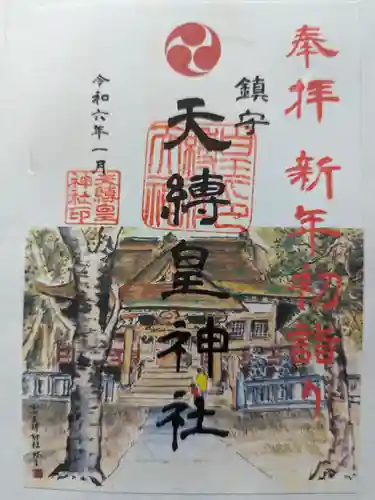 奉拝 新年初詣り
鎮守
天縛皇神社
令和六年一月
天縛皇
神社印